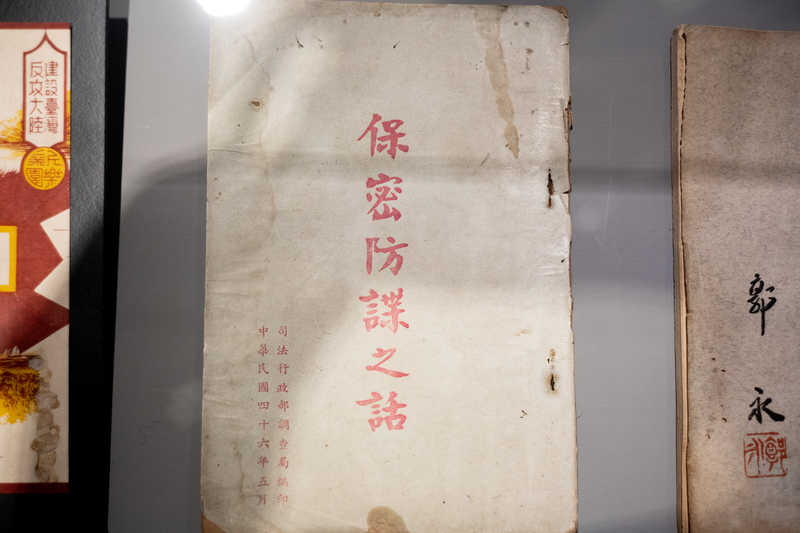 建設臺灣
反攻大陸
保密防諜之話
司法行政部調查局編印
中華民國四十六年五月
郭永
郭永